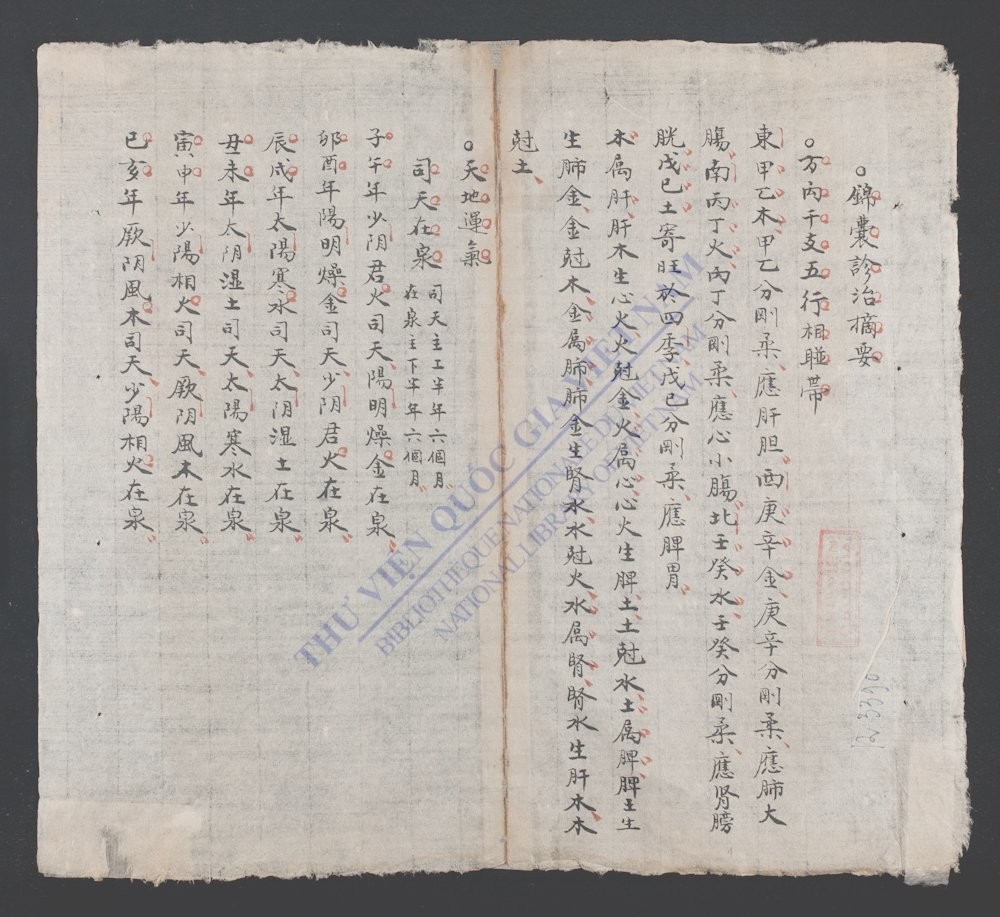 錦囊診治摘要
方丙干支五行相聯帶
東甲乙木甲乙分剛柔應肝胆西庚辛金庚辛分剛柔應肺大
膓南丙丁火丙丁分剛柔應心小膓北壬癸水壬癸分剛柔應肾膀
胱戊己土寄旺於四季戊己分剛柔應脾胃
木属肝肝木生心火火尅金火属心心火生脾土土尅水土属脾脾土生
生肺金金尅木金属肺肺金生腎水水尅火水属腎腎水生肝木木
尅土
天地運氣
司天在泉 司天主上半年六個月
在泉主下半年六個月
子午年少阴君火司天陽明燥金在泉
卯酉年陽明燥金司天少阴君火在泉
辰戌年太陽寒水司天太阴湿土在泉
丑未年太阴湿土司天太陽寒水在泉
寅申年少陽相火司天厥阴風木在泉
巳亥年厥阴風木司天少陽相火在泉
THƯ VIỆN QUỐC GIA VIỆT NAM
BIBLIOTHEQUE NATIONALE DU VIETNAM
NATIONAL LIBRARY OF VIETNAM